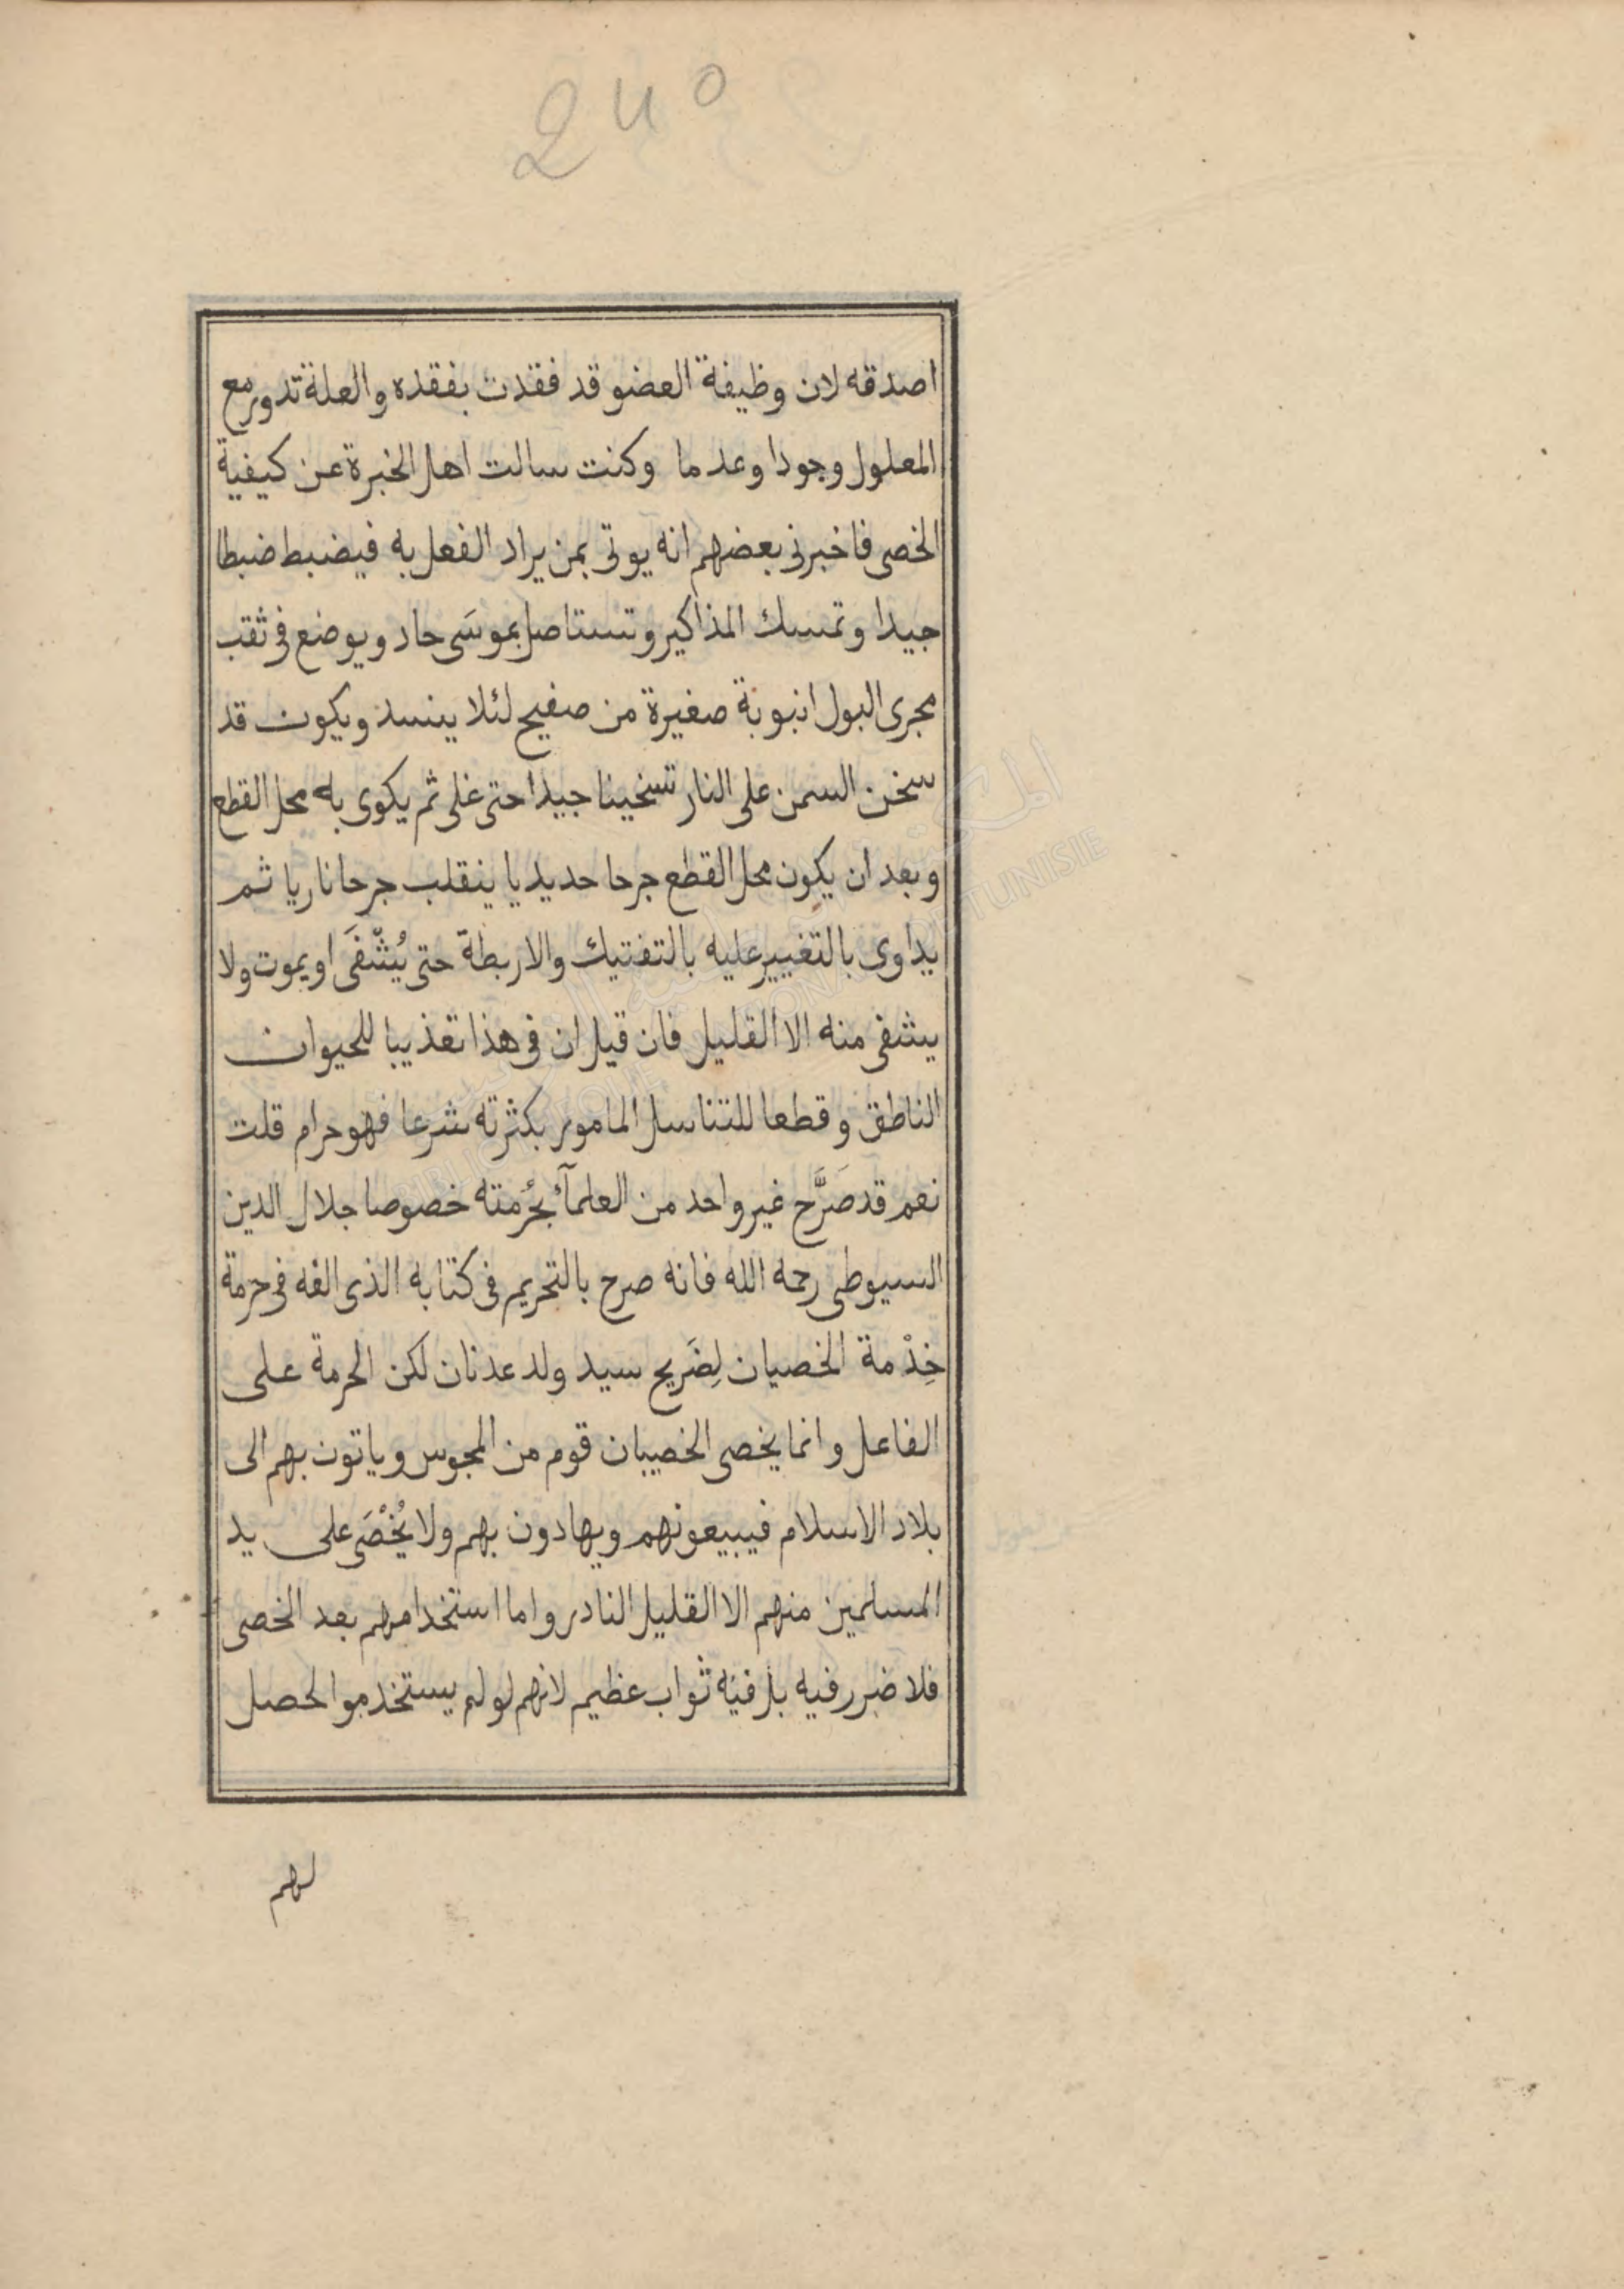 240
اصدقه لان وظيفة العضو قد فقدت بفقده والعلة تدور مع
المعلول وجودا وعدما وكنت سالت اهل الخبرة عن كيفية
الخصى فاخبرنى بعضهم انه يوتى بمن يراد الفعل به فيضبط ضبطا
جيدا وتمسك المذاكير وتستاصل بموسَى حاد ويوضع فى ثقب
مجرى البول انبوبة صغيرة من صفيح لئلا ينسد ويكون قد
سخن السمن على النار تسخينا جيدا حتى غلى ثم يكوى به محل القطع
وبعد ان يكون محل القطع جرحا حديديا ينقلب جرحا ناريا ثم
يداوى بالتغيير عليه بالتفتيك والاربطة حتى يُشْفَى او يموت ولا
يشفى منه الا القليل فان قيل ان فى هذا تعذيبا للحيوان
الناطق وقطعا للتناسل المامور بكثرته شرعا فهو حرام قلت
نعم قد صَرَّح غير واحد من العلمآء بحُرمته خصوصا جلال الدين
السيوطى رحمه الله فانه صرح بالتحريم فى كتابه الذى الفه فى حرمة
خِدْمة الخصيان لِضَريح سيد ولد عدنان لكن الحرمة على
الفاعل وانما يخصى الخصيان قوم من المجوس وياتون بهم الى
بلاد الاسلام فيبيعونهم ويهادون بهم ولا يُخْصَى على يد
المسلمين منهم الا القليل النادر واما استخدامهم بعد الخصى
فلا ضرر فيه بل فيه ثواب عظيم لانهم لو لم يستخدموا لحصل
لهم
BIBLIOTHEQUE NATIONALE DE TUNISIE